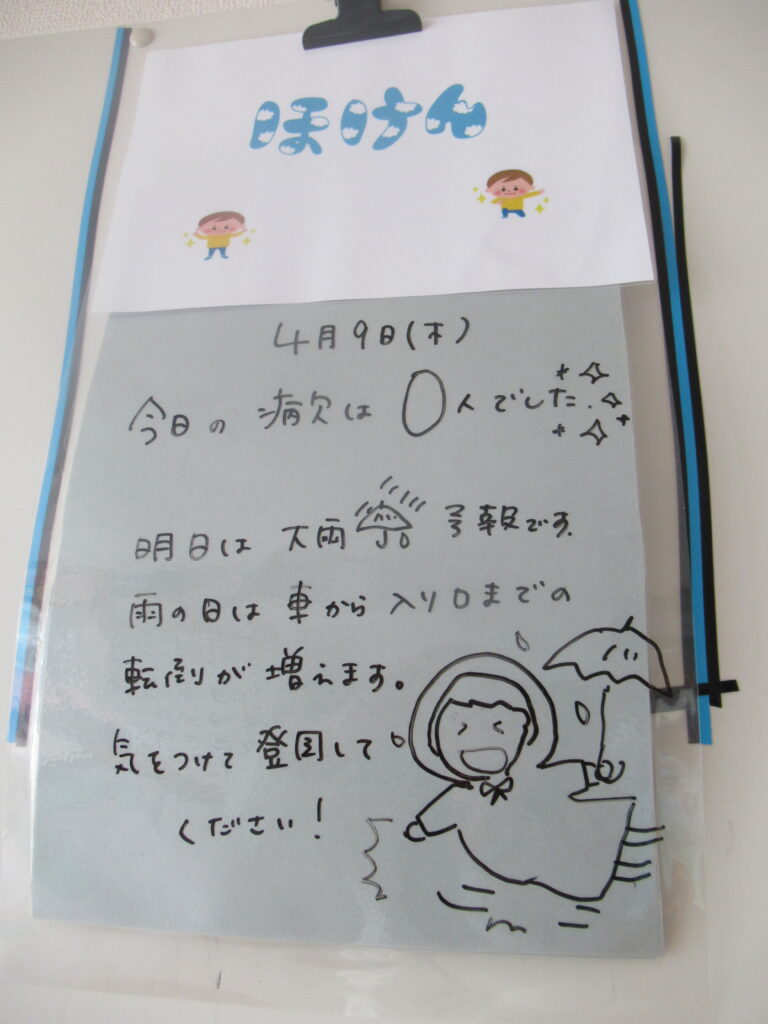 ほけん
4月9日(木)
今日の 病欠は 0人でした.
明日は 大雨 予報です.
雨の日は 車から 入り口までの
転倒が 増えます。
気をつけて 登園して
ください!